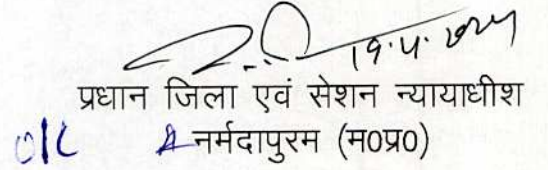 19.4.2024
प्रधान जिला एवं सेशन न्यायाधीश
O/C नर्मदापुरम (म०प्र०)